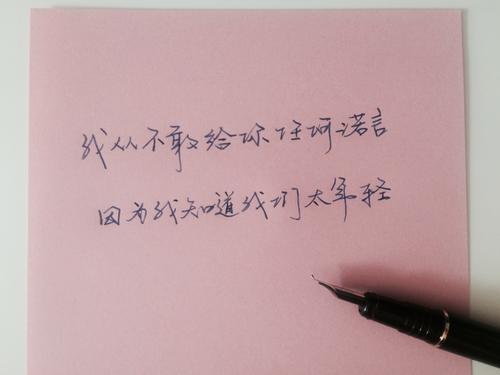 我从不敢给你任何诺言
因为我知道我们太年轻